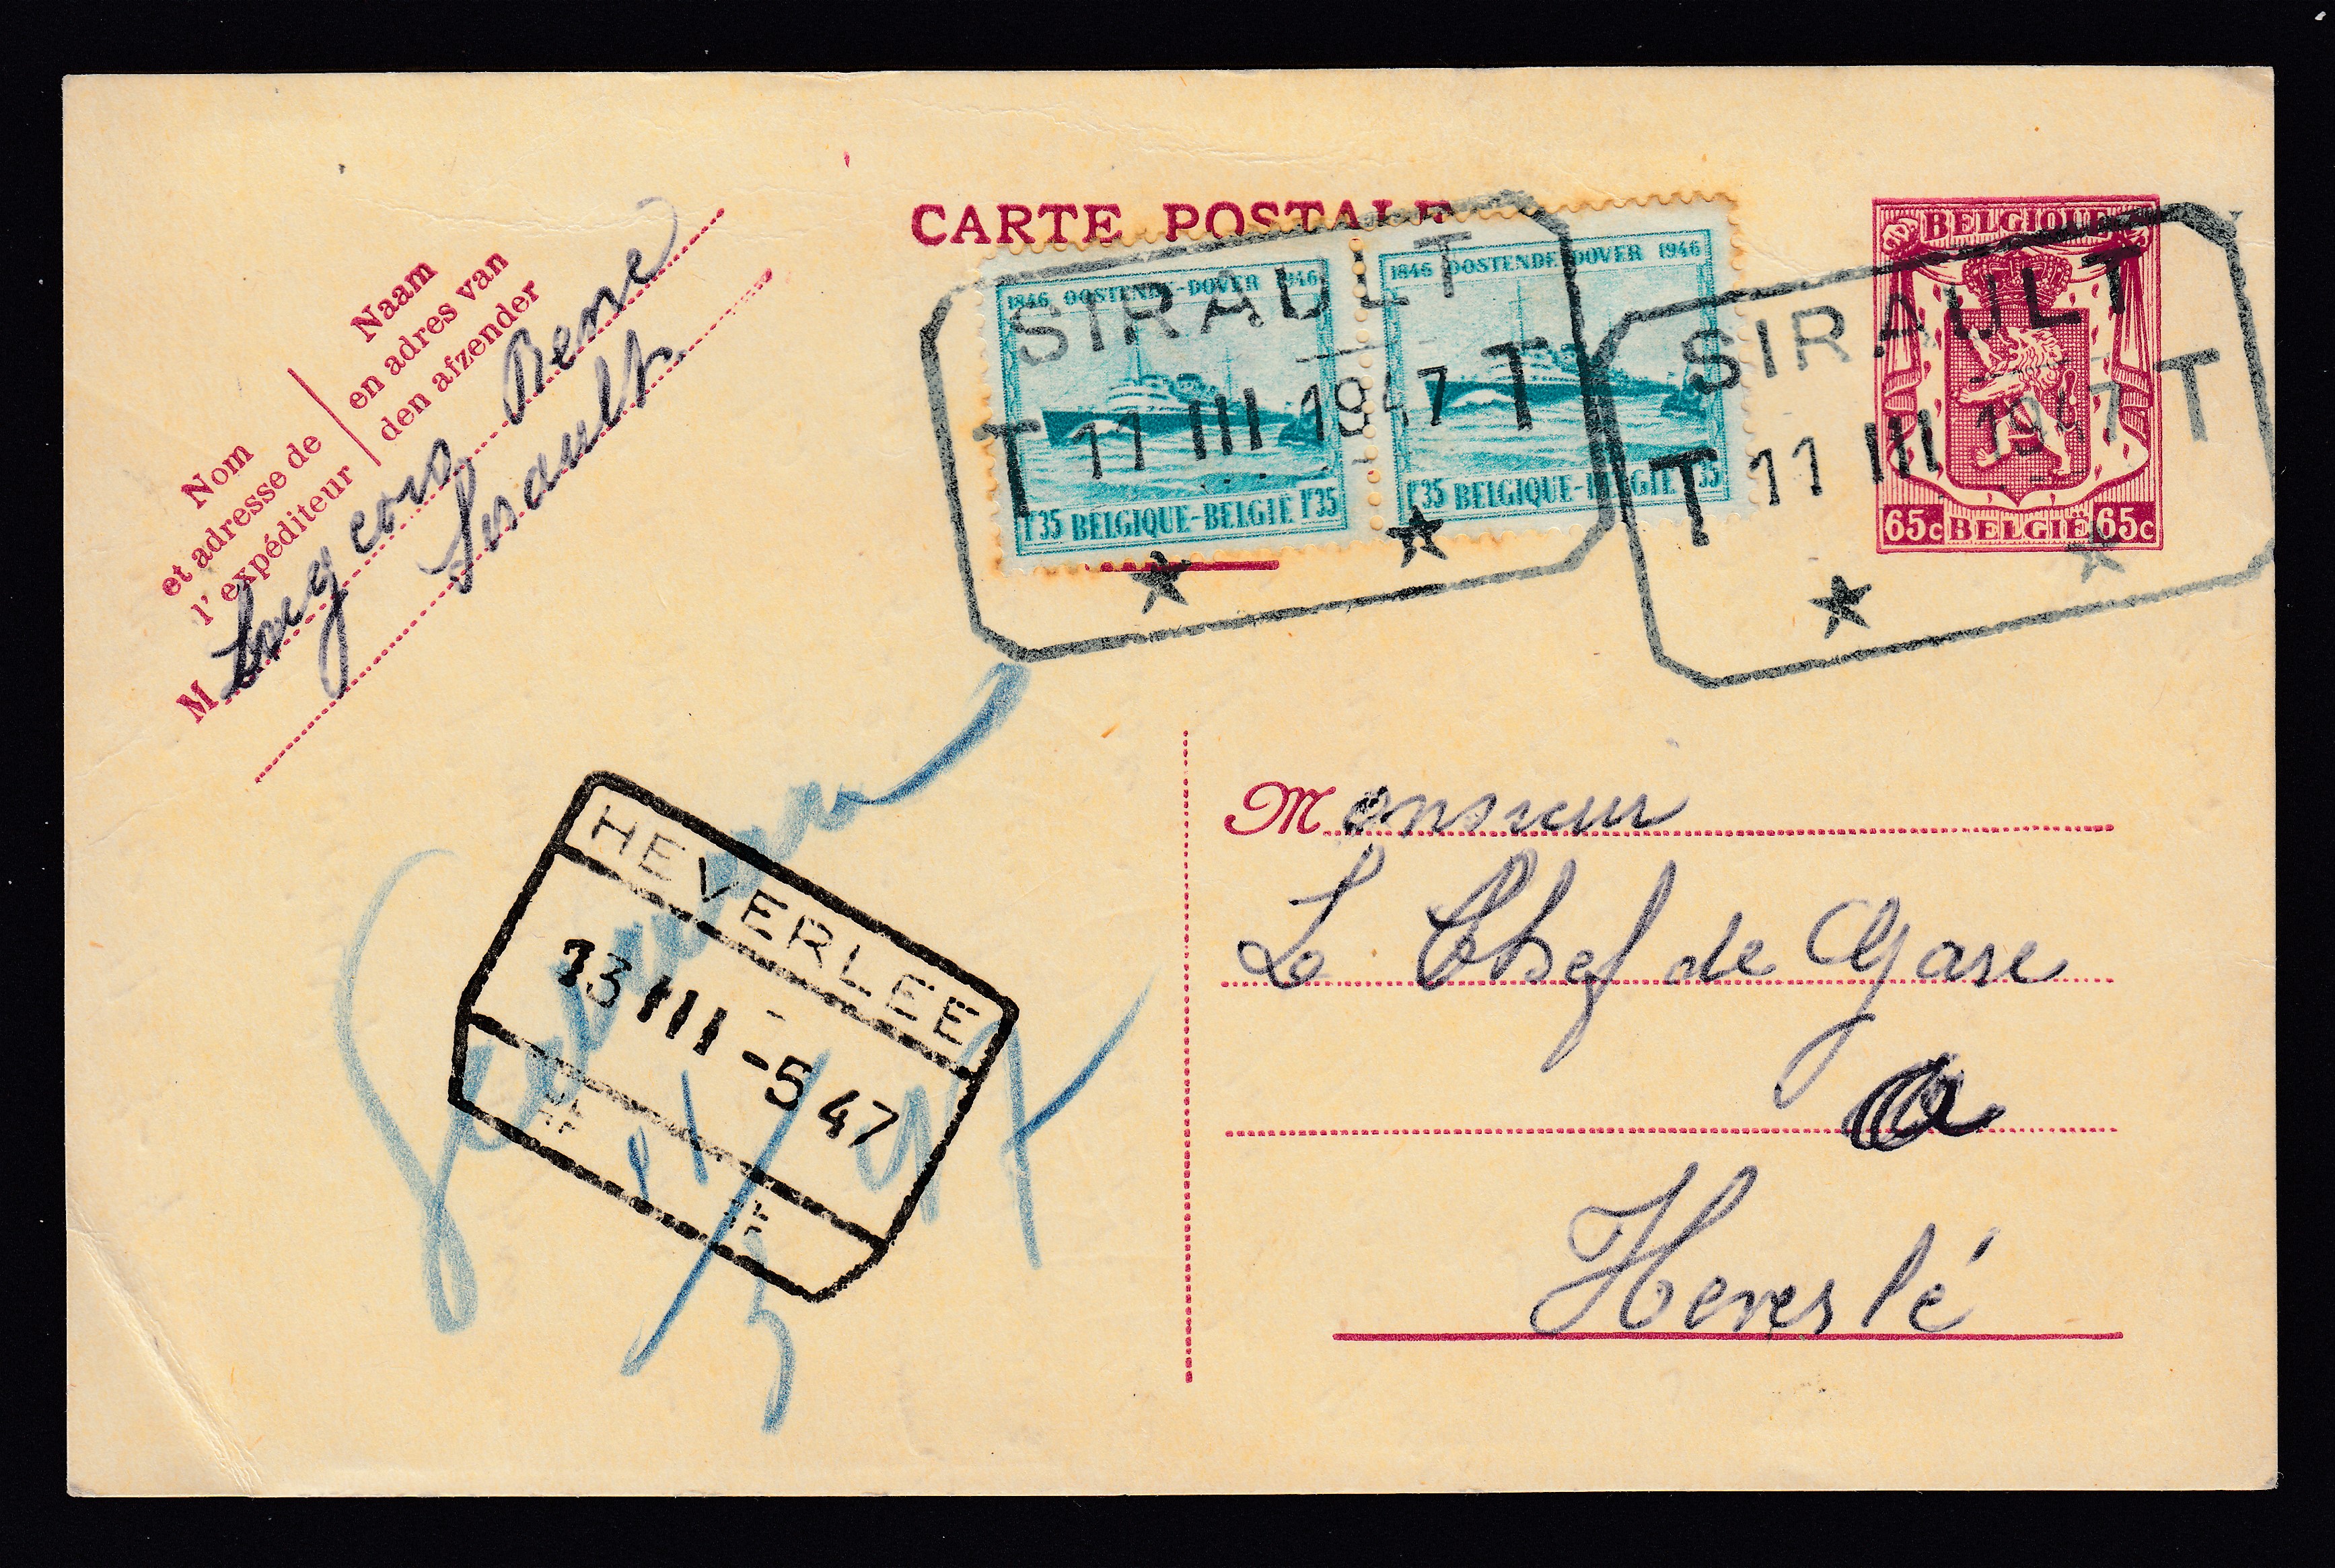 CARTE POSTALE
Nom
et adresse de
l'expéditeur
Naam
en adres van
den afzender
M
Sirault
1846 OOSTENDE-DOVER 1946
1F35 BELGIQUE-BELGIE 1F35
1846 OOSTENDE-DOVER 1946
1F35 BELGIQUE-BELGIE 1F35
SIRAULT
T 11 III 1947 T
BELGIQUE
65c BELGIË 65c
SIRAULT
T 11 III 1947 T
HEVERLEE
13 III -5 47
11/3 47
Monsieur
Le Chef de Gare
a
Heverlé